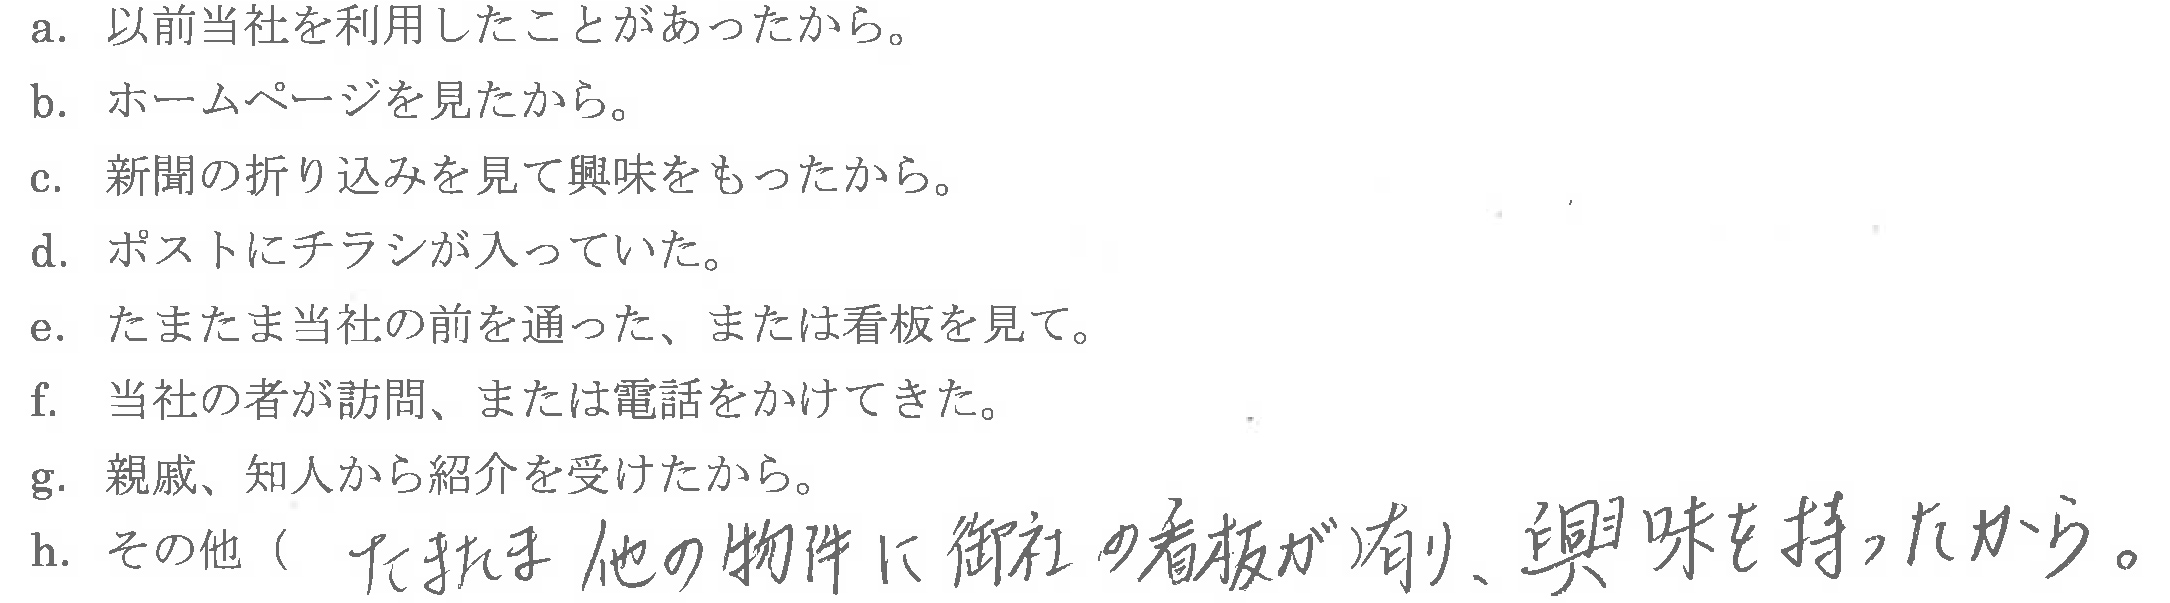 a. 以前当社を利用したことがあったから。
b. ホームページを見たから。
c. 新聞の折り込みを見て興味をもったから。
d. ポストにチラシが入っていた。
e. たまたま当社の前を通った、または看板を見て。
f. 当社の者が訪問、または電話をかけてきた。
g. 親戚、知人から紹介を受けたから。
h. その他（ たまたま他の物件に御社の看板が有り、興味を持ったから。